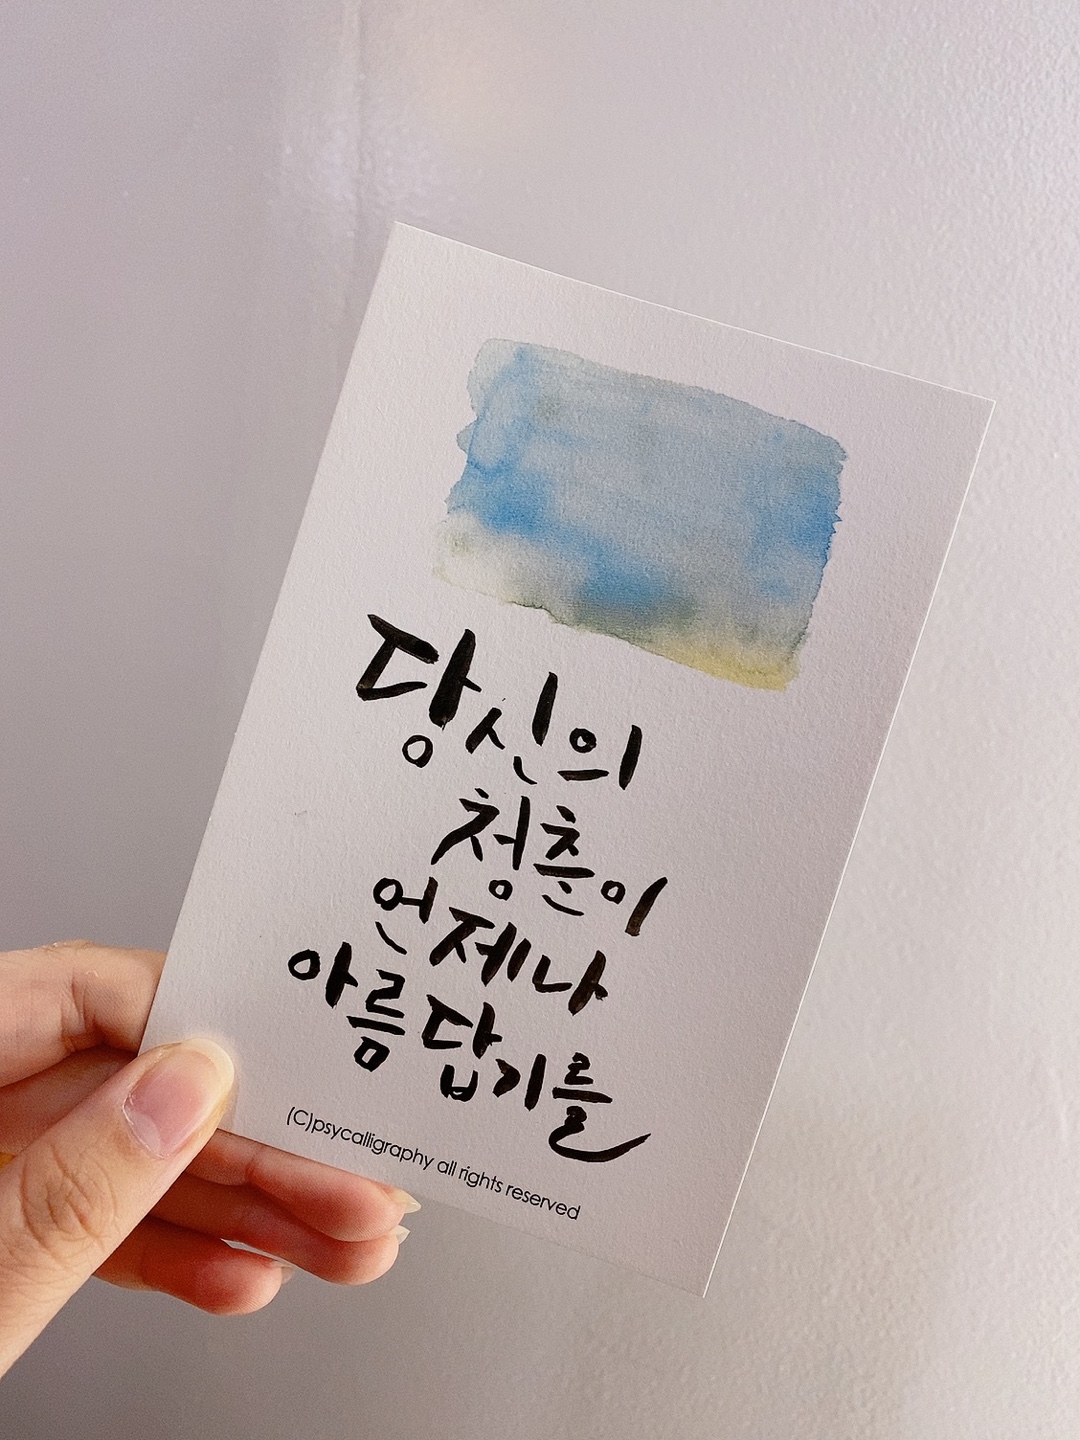 당신의
청춘이
언제나
아름답기를
(C)psycalligraphy all rights reserved